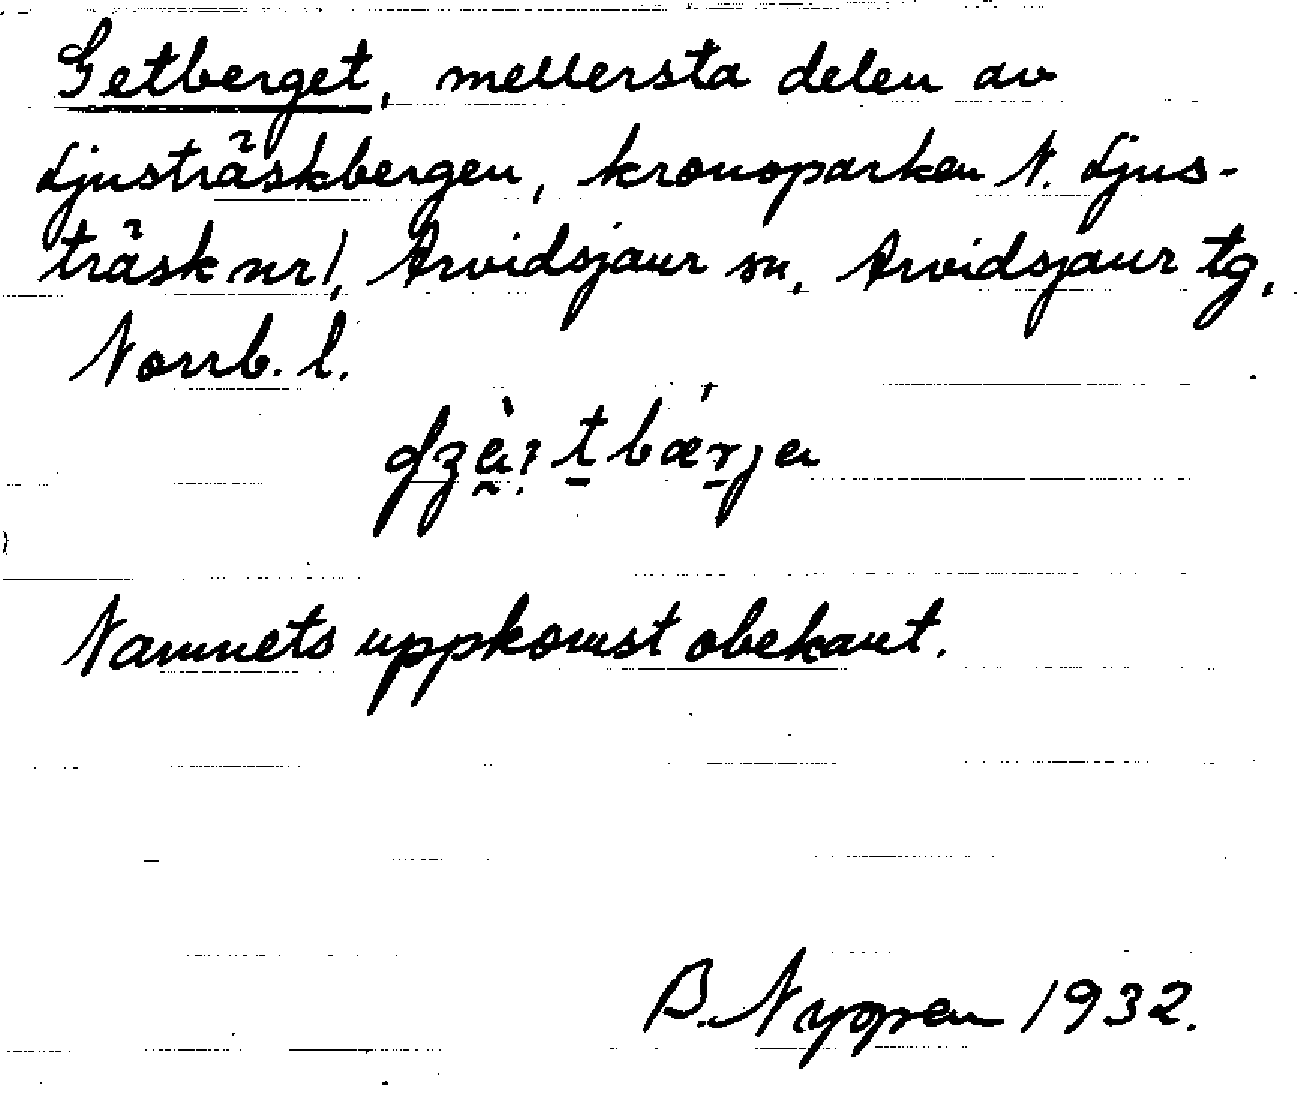 Getberget, mellersta delen av
Ljusträskbergen, kronoparken N. Ljus-
träsk nr 1, Arvidsjaur sn, Arvidsjaur tg,
Norrb. l.
Namnets uppkomst obekant.
B. Nyppen 1932.